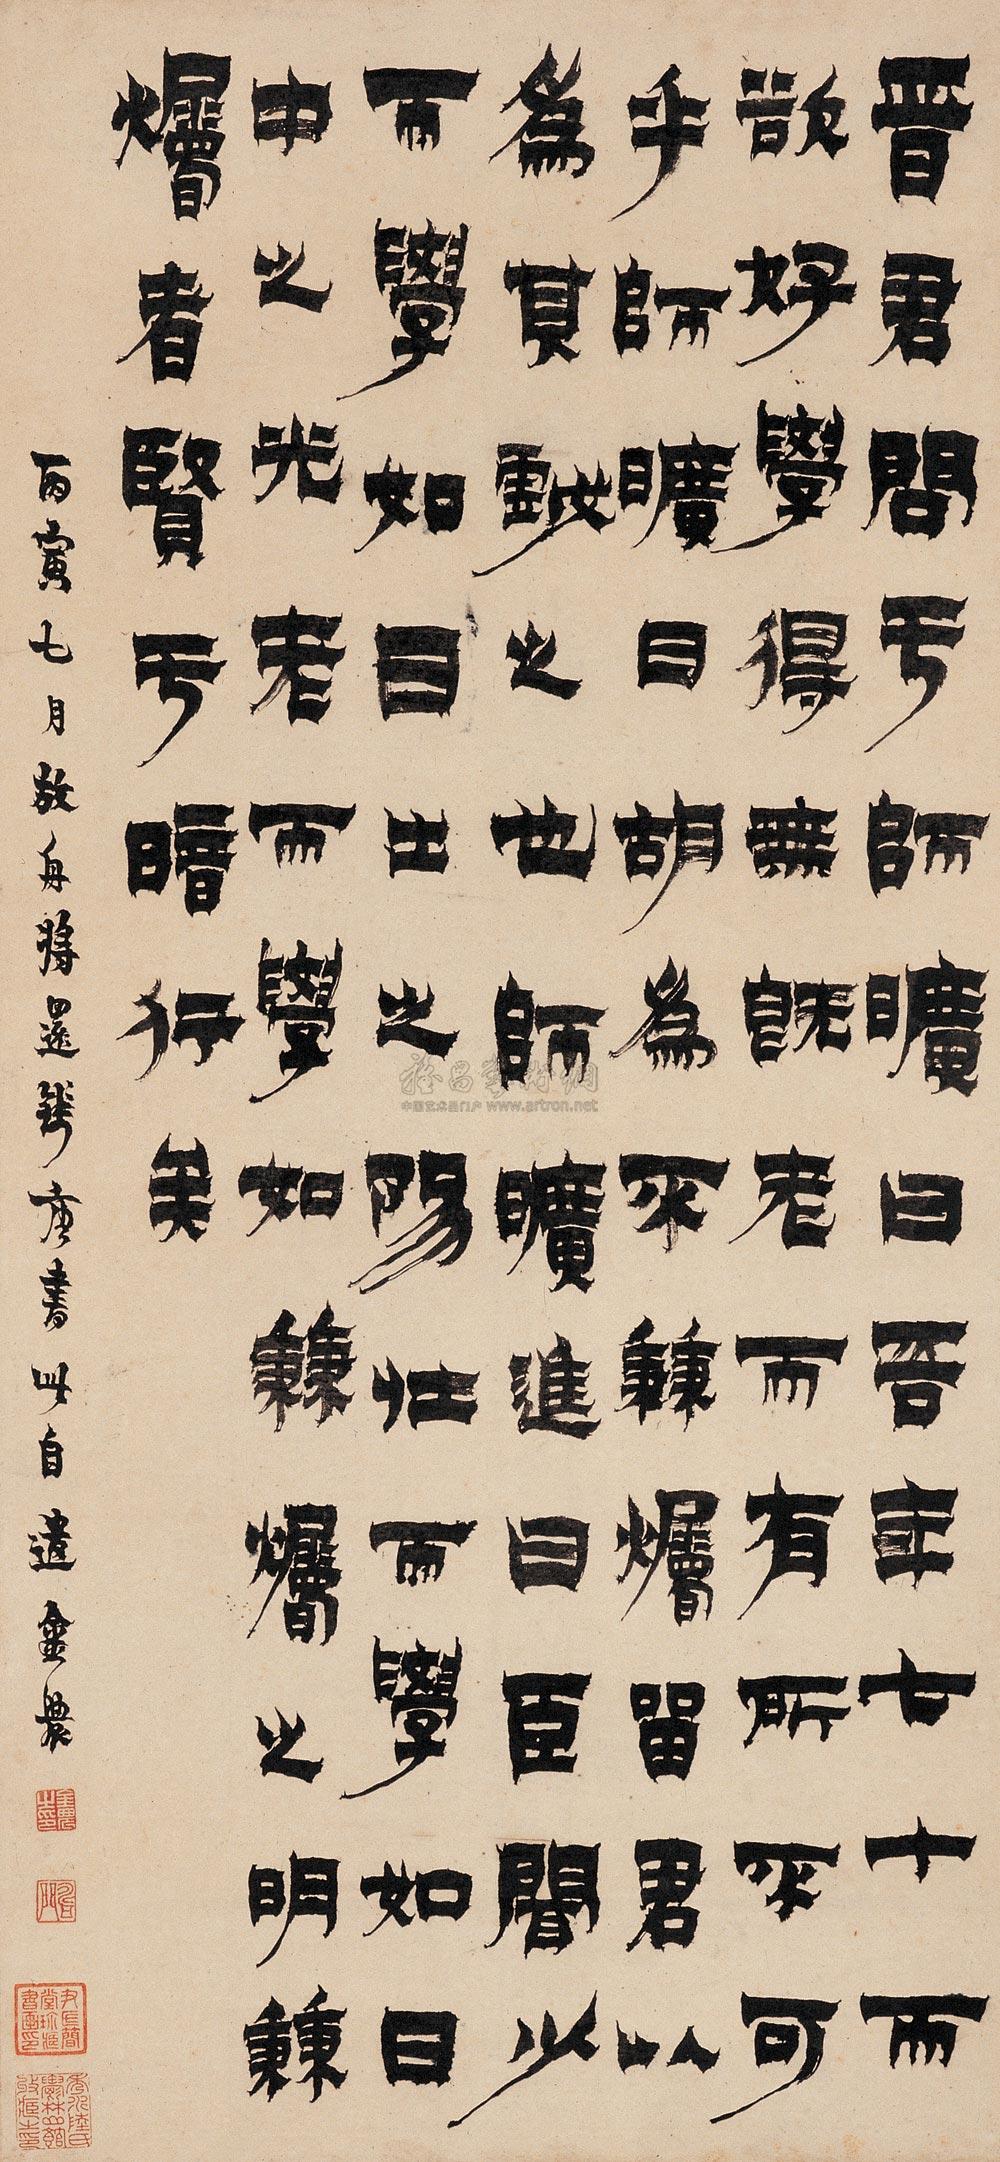 晉君問亏師曠曰吾年七十而
欲好學得無既老而有所不可
乎師曠曰胡爲不秉爥留君以
爲其戲之也師曠進曰臣聞少
而學如日出之陽壯而學如日
中之光老而學如秉爥之明秉
爥者賢亏暗行矣
丙寅七月放舟將還錢唐書此自遣金農
雅昌藝術網
中国艺术品门户 www.artron.net